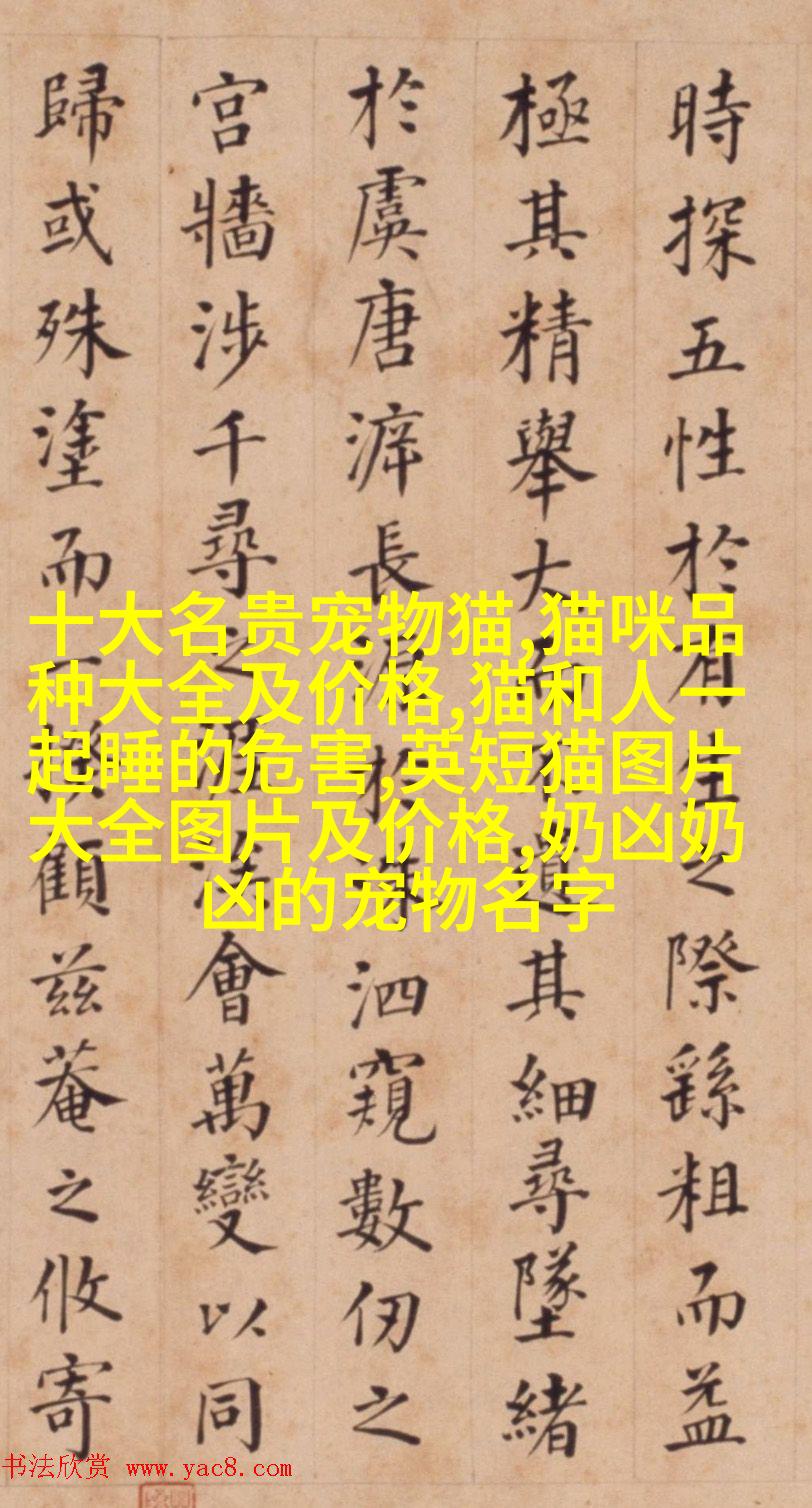 時探五性於有生之際繇粗而益
極其精舉大而不遺其細尋墜緒
於虞唐長於洙泗窺數仞之
宮牆涉千尋之會萬變以同
歸或殊塗而一揆顧茲菴之攸寄
十大名贵宠物猫,猫咪品
种大全及价格,猫和人一
起睡的危害,英短猫图片
大全图片及价格,奶凶奶
凶的宠物名字
书法欣赏 www.yac8.com